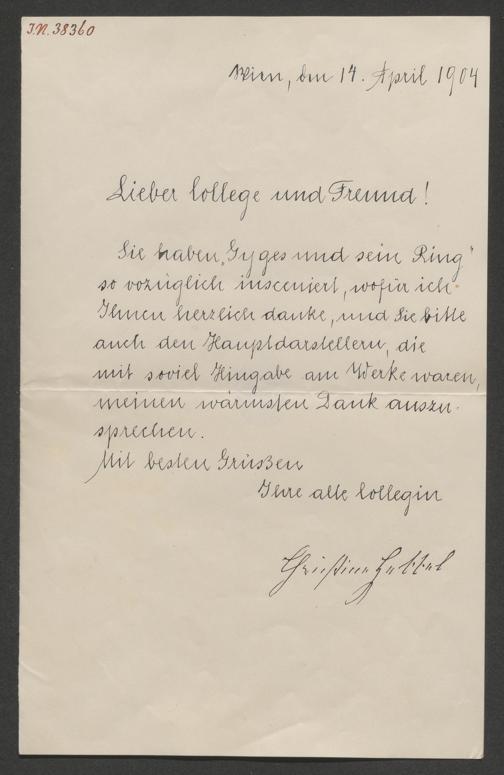 I.N. 38360
Wien, den 14. April 1904
Lieber College und Freund!
Sie haben „Gyges und sein Ring"
so vozüglich insceniert, wofür ich
Ihnen herzlich danke, und Sie bitte
auch den Hauptdarstellern, die
mit soviel Hingabe am Werke waren,
meinen wärmsten Dank auszu-
sprechen.
Mit besten Grüßen
Ihre alte Collegin
Christine Hebbel